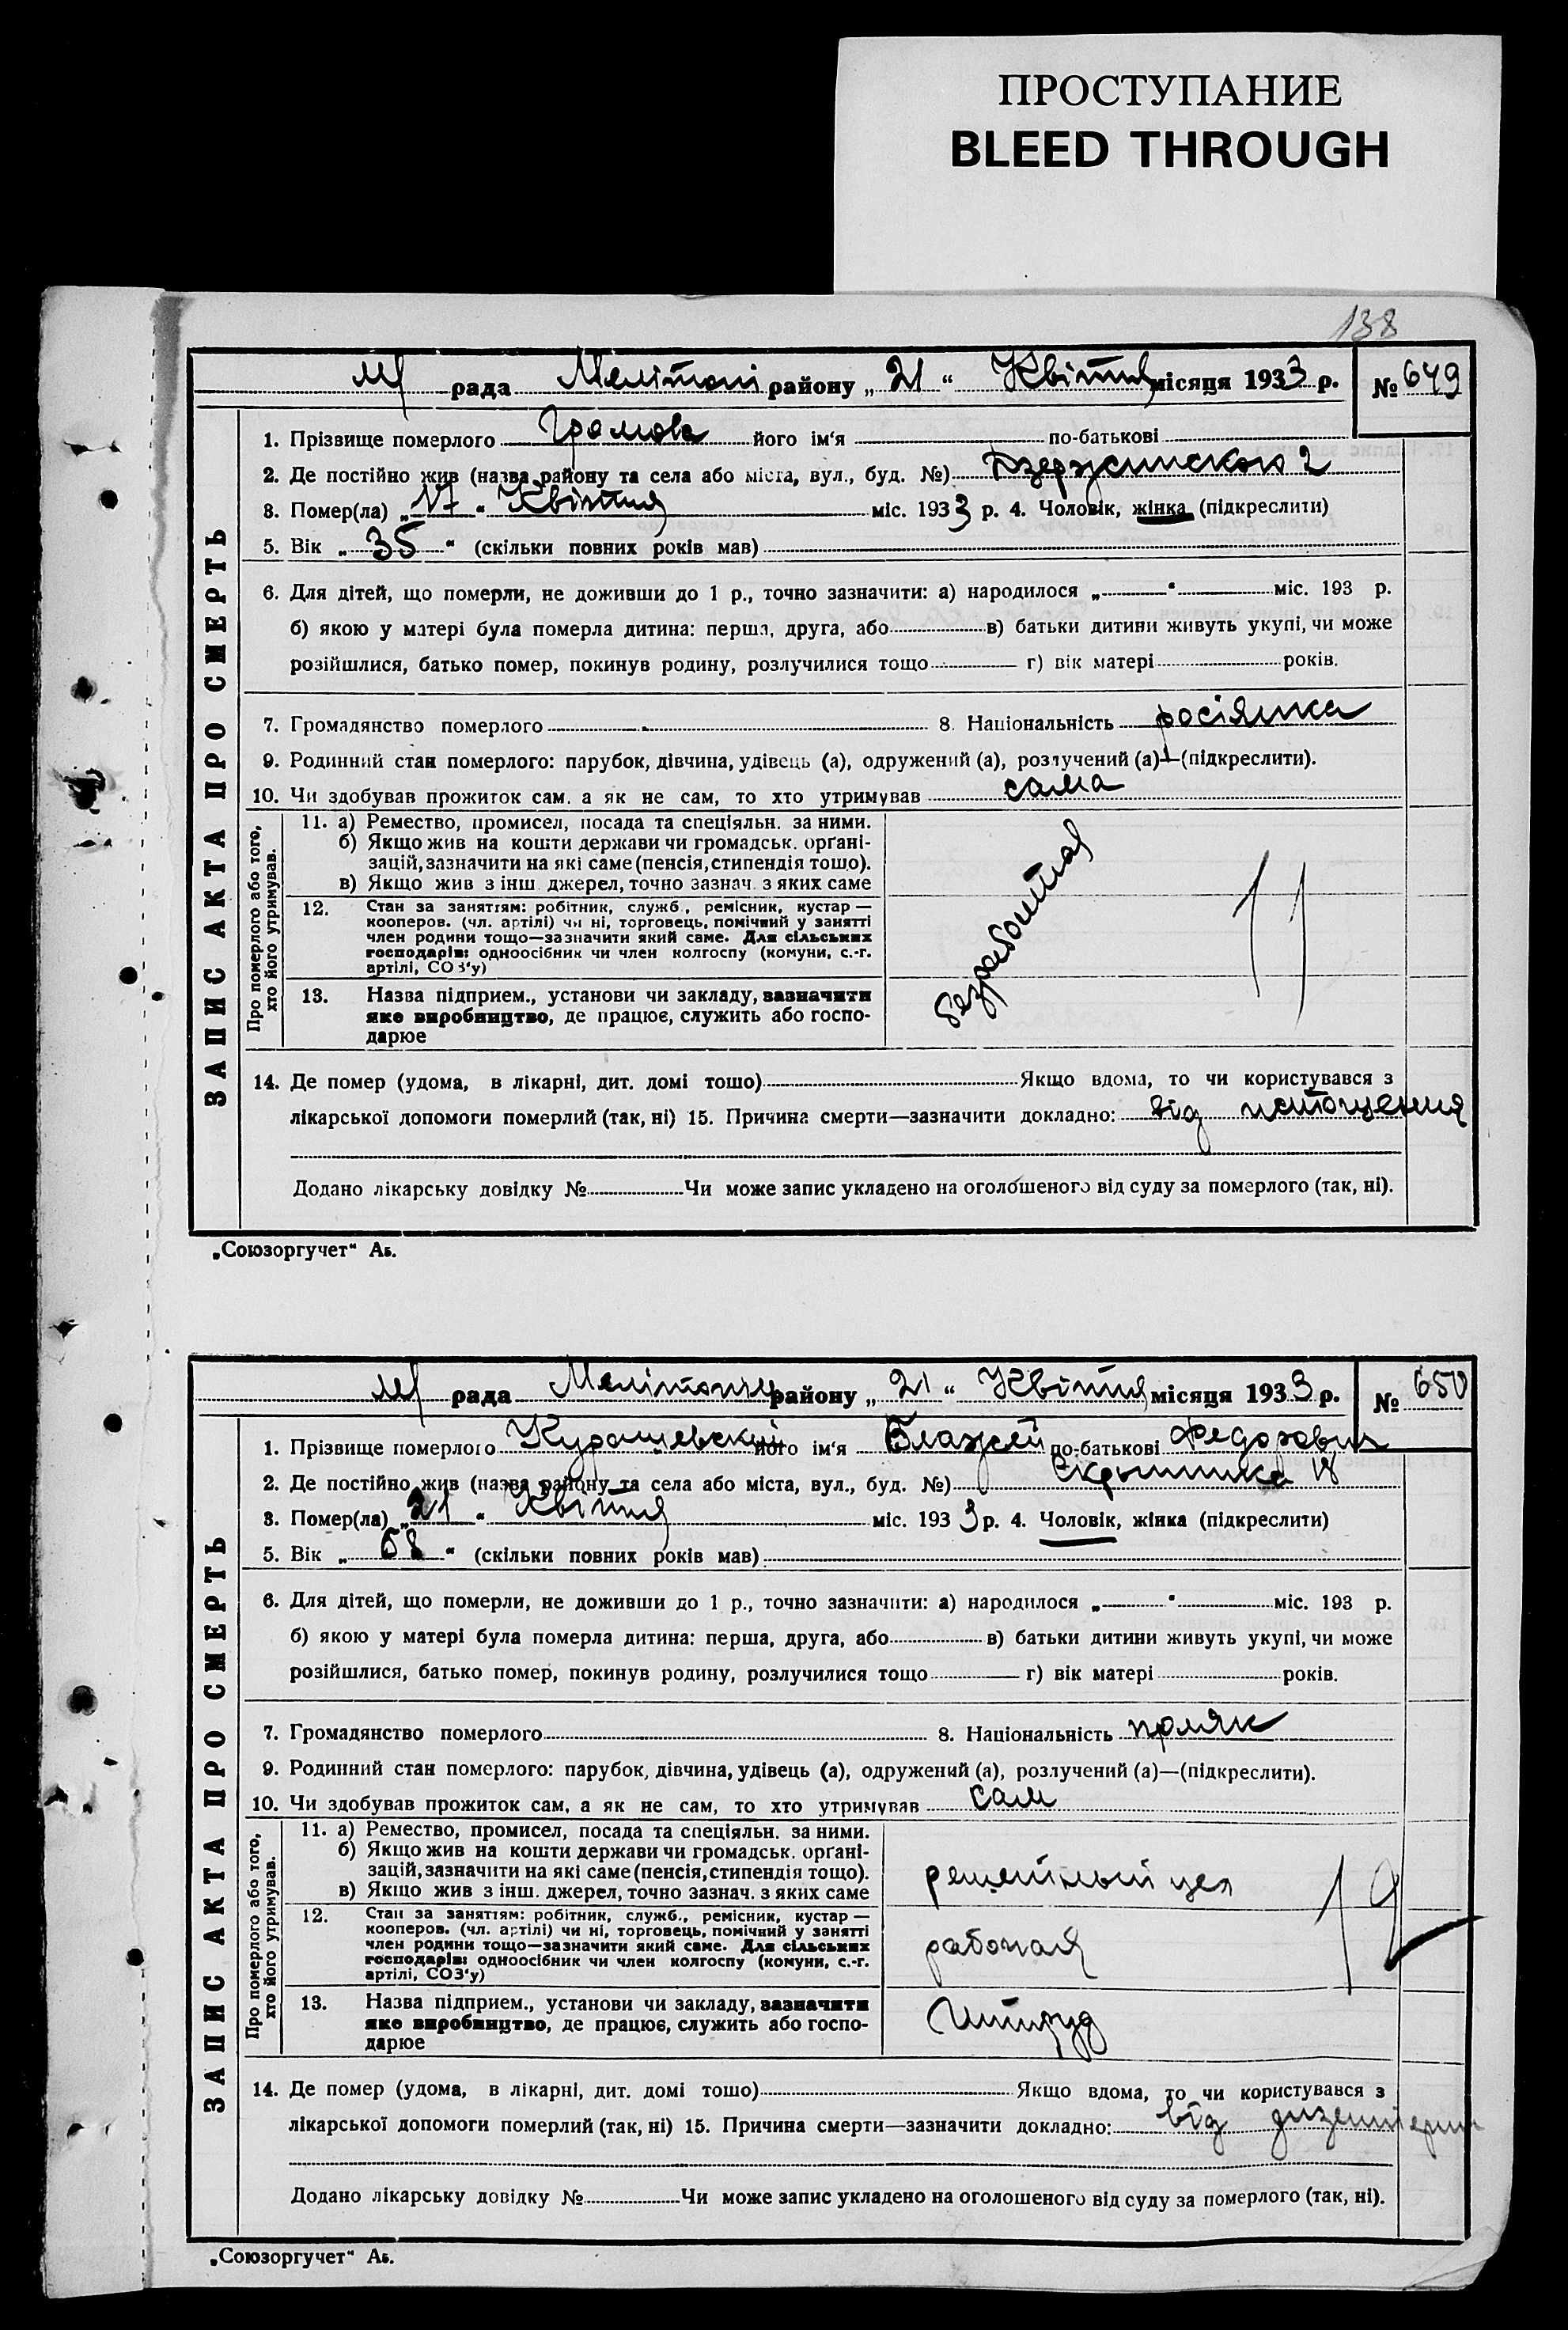 ПРОСТУПАНИЕ
BLEED THROUGH
138
рада Мелітопі району „21“ Квітня місяця 1933 р. № 649
ЗАПИС АКТА ПРО СМЕРТЬ
1. Прізвище померлого Громова його ім‘я по-батькові
2. Де постійно жив (назва району та села або міста, вул., буд. №) Дзержинского 2
3. Помер(ла) „17“ Квітня міс. 1933 р. 4. Чоловік, жінка (підкреслити)
5. Вік „35“ (скільки повних років мав)
6. Для дітей, що померли, не доживши до 1 р., точно зазначити: а) народилося „ “ міс. 193 р.
б) якою у матері була померла дитина: перша, друга, або в) батьки дитини живуть укупі, чи може
розійшлися, батько помер, покинув родину, розлучилися тощо г) вік матері років.
7. Громадянство померлого 8. Національність росіянка
9. Родинний стан померлого: парубок, дівчина, удівець (а), одружений (а), розлучений (а)—(підкреслити).
10. Чи здобував прожиток сам, а як не сам, то хто утримував сама
Про померлого або того, хто його утримував.
11. а) Ремество, промисел, посада та спеціяльн. за ними.
б) Якщо жив на кошти держави чи громадськ. орґані-
зацій, зазначити на які саме (пенсія, стипендія тощо).
в) Якщо жив з інш. джерел, точно зазнач. з яких саме
12. Стан за заняттям: робітник, служб., ремісник, кустар —
кооперов. (чл. артілі) чи ні, торговець, помічний у занятті
член родини тощо—зазначити який саме. Для сільських
господарів: одноосібник чи член колгоспу (комуни, с.-г.
артілі, СОЗ‘у)
13. Назва підприєм., установи чи закладу, зазначити
яке виробництво, де працює, служить або госпо-
дарює
безработная
11
14. Де помер (удома, в лікарні, дит. домі тощо) Якщо вдома, то чи користувався з
лікарської допомоги померлий (так, ні) 15. Причина смерти—зазначити докладно: від истощения
Додано лікарську довідку № Чи може запис укладено на оголошеного від суду за померлого (так, ні).
„Союзоргучет“ Аб.
рада Мелітопу району „21“ Квітня місяця 1933 р. № 650
ЗАПИС АКТА ПРО СМЕРТЬ
1. Прізвище померлого Курашевский його ім‘я Блажей по-батькові Федорович
2. Де постійно жив (назва району та села або міста, вул., буд. №) Скрыпника 18
3. Помер(ла) „21“ Квітня міс. 1933 р. 4. Чоловік, жінка (підкреслити)
5. Вік „68“ (скільки повних років мав)
6. Для дітей, що померли, не доживши до 1 р., точно зазначити: а) народилося „ “ міс. 193 р.
б) якою у матері була померла дитина: перша, друга, або в) батьки дитини живуть укупі, чи може
розійшлися, батько помер, покинув родину, розлучилися тощо г) вік матері років.
7. Громадянство померлого 8. Національність поляк
9. Родинний стан померлого: парубок, дівчина, удівець (а), одружений (а), розлучений (а)—(підкреслити).
10. Чи здобував прожиток сам, а як не сам, то хто утримував сам
Про померлого або того, хто його утримував.
11. а) Ремество, промисел, посада та спеціяльн. за ними.
б) Якщо жив на кошти держави чи громадськ. орґані-
зацій, зазначити на які саме (пенсія, стипендія тощо).
в) Якщо жив з інш. джерел, точно зазнач. з яких саме
цех
19
12. Стан за заняттям: робітник, служб., ремісник, кустар —
кооперов. (чл. артілі) чи ні, торговець, помічний у занятті
член родини тощо—зазначити який саме. Для сільських
господарів: одноосібник чи член колгоспу (комуни, с.-г.
артілі, СОЗ‘у)
рабочая
13. Назва підприєм., установи чи закладу, зазначити
яке виробництво, де працює, служить або госпо-
дарює
14. Де помер (удома, в лікарні, дит. домі тощо) Якщо вдома, то чи користувався з
лікарської допомоги померлий (так, ні) 15. Причина смерти—зазначити докладно: від дизентерии
Додано лікарську довідку № Чи може запис укладено на оголошеного від суду за померлого (так, ні).
„Союзоргучет“ Аб.